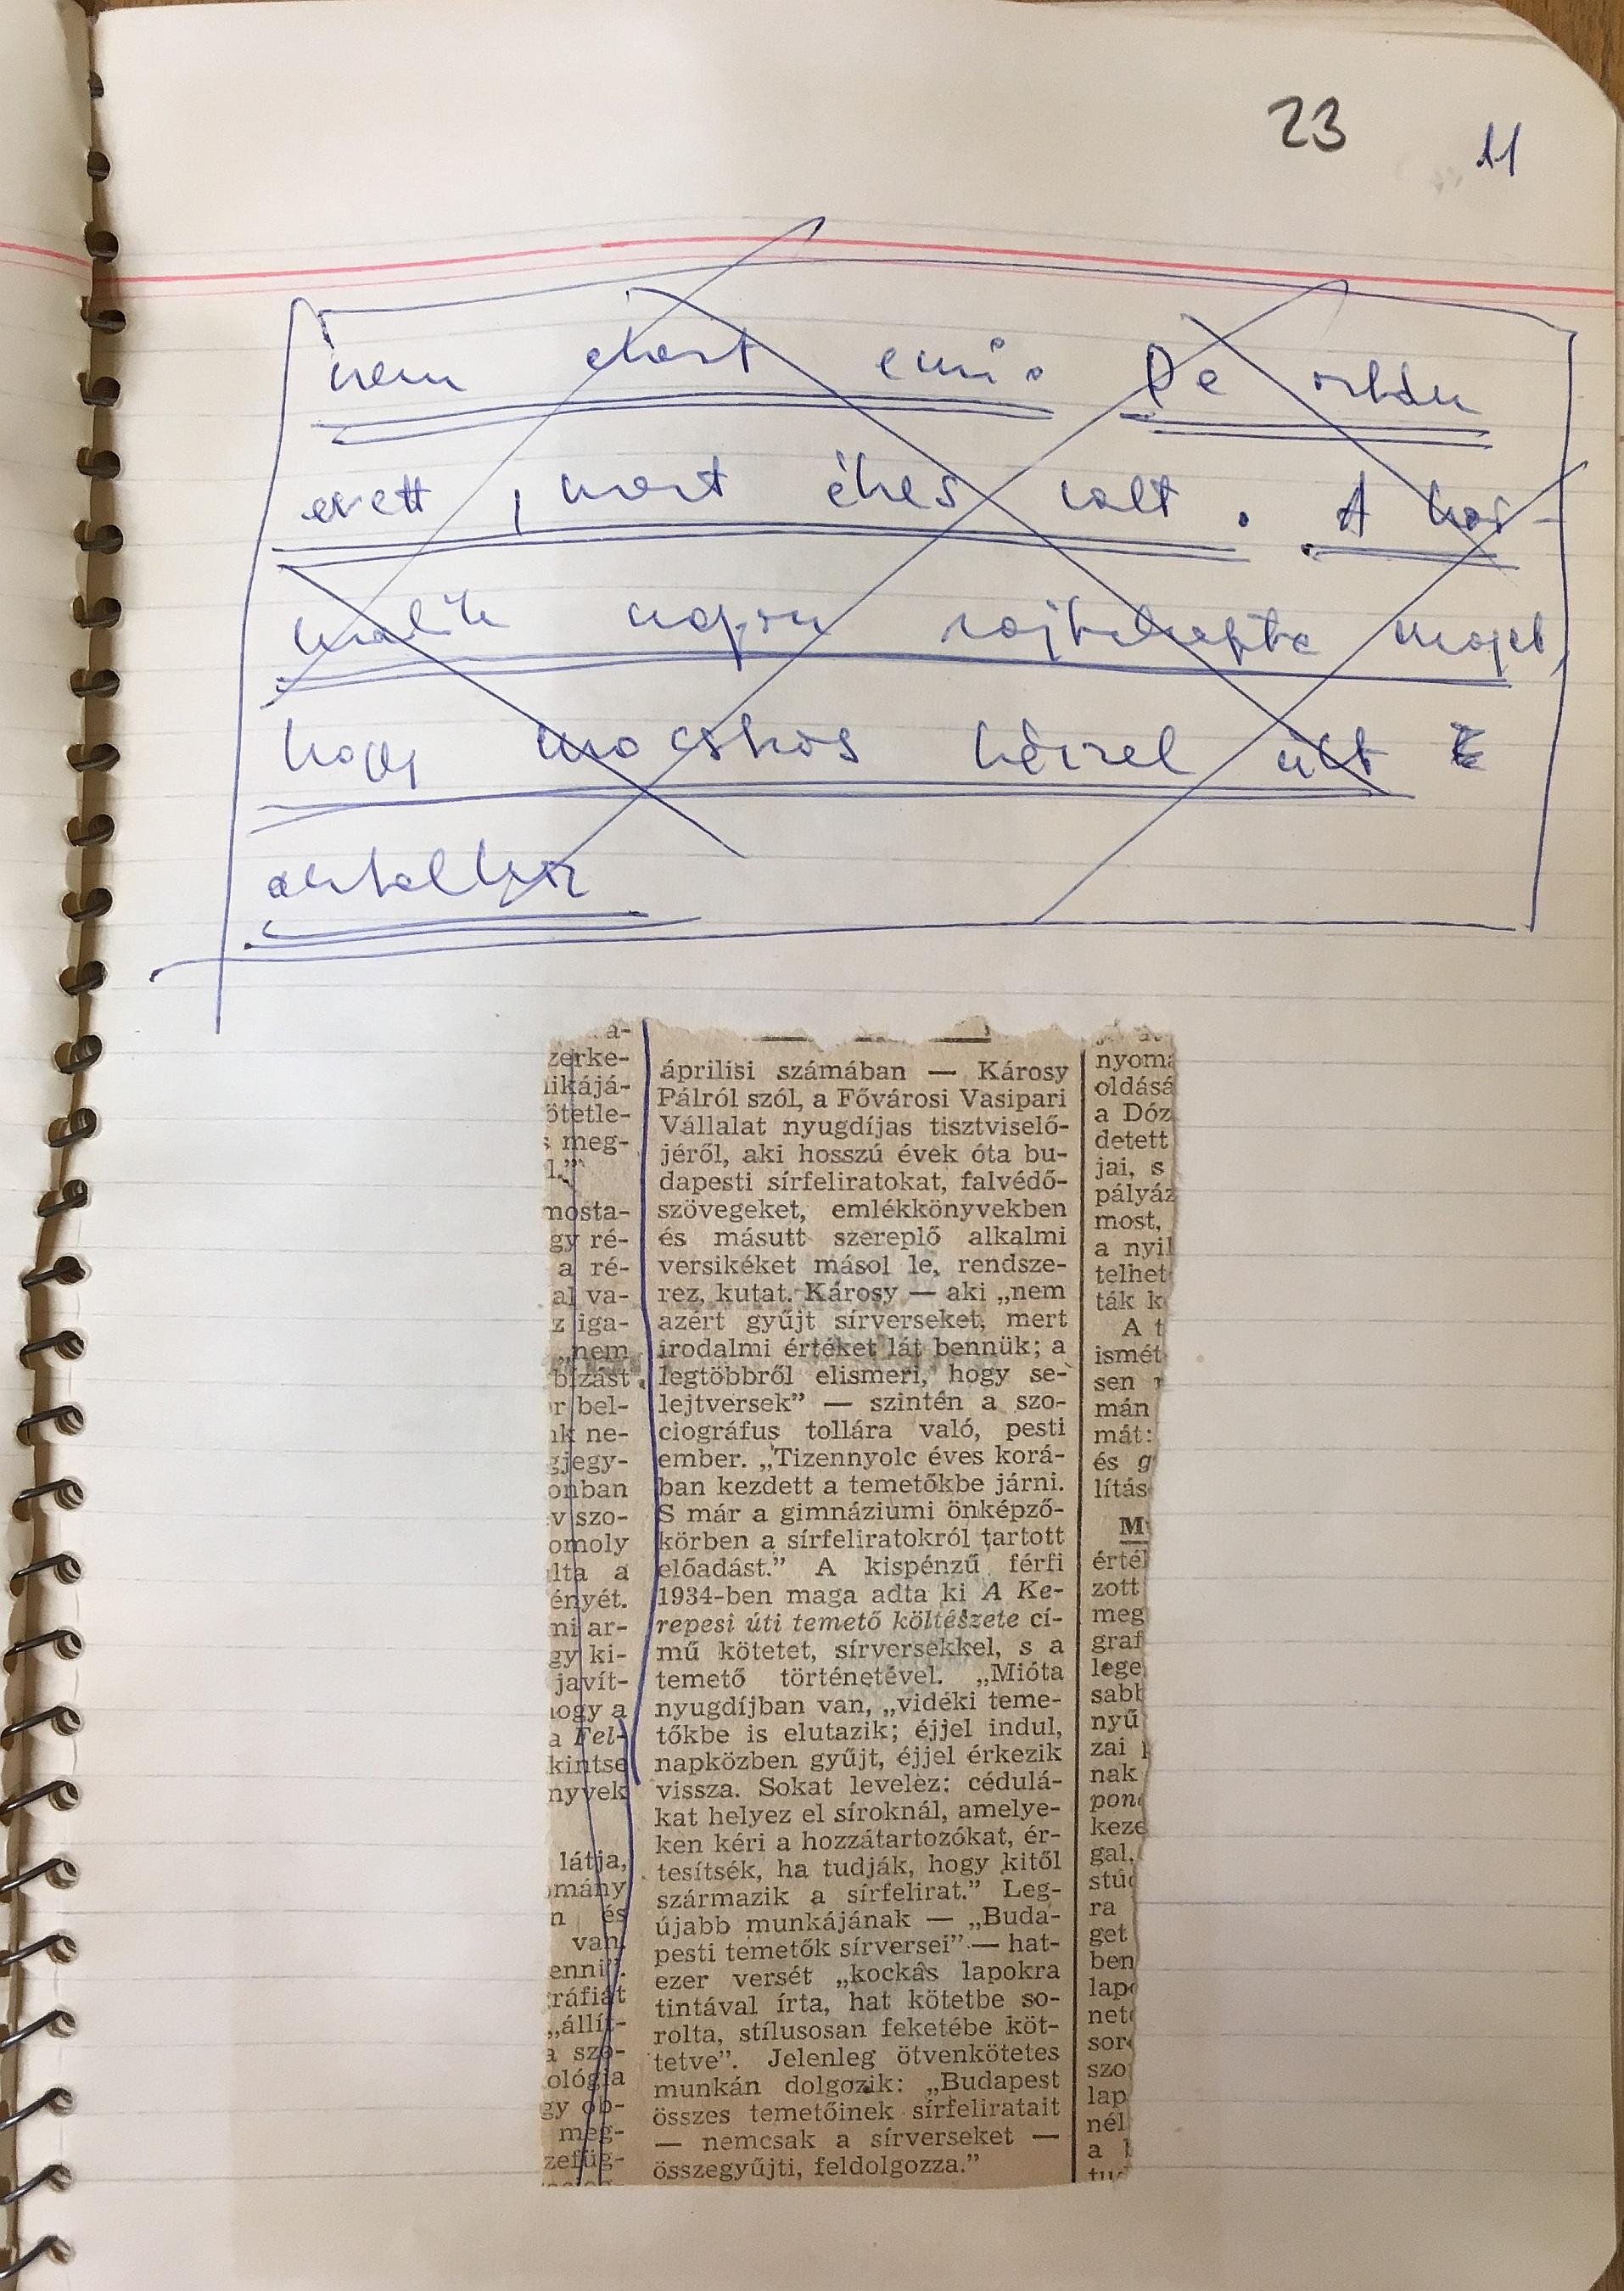 23 11
nem akart enni. De ortán
evett, mert éhes volt. A har-
madik napon rajtakapta magát,
hogy mocskos kézzel ült
asztalhoz
a-
zerke-
likájá-
ötetle-
s meg-
l.”
mosta-
gy ré-
a ré-
al va-
z iga-
„nem
bízást
r bel-
nk ne-
gjegy-
onban
v szo-
omoly
lta a
ényét.
mi ar-
gy ki-
javít-
hogy a
a Fel-
kintse
nyvek
látja,
omány
n és
van.
enni”.
ráfiát
„állít-
a szo-
ológia
gy ob-
meg-
zefüg-
áprilisi számában — Károsy
Pálról szól, a Fővárosi Vasipari
Vállalat nyugdíjas tisztviselő-
jéről, aki hosszú évek óta bu-
dapesti sírfeliratokat, falvédő-
szövegeket, emlékkönyvekben
és másutt szereplő alkalmi
versikéket másol le, rendsze-
rez, kutat. Károsy — aki „nem
azért gyűjt sírverseket, mert
irodalmi értéket lát bennük; a
legtöbbről elismeri, hogy se-
lejtversek” — szintén a szo-
ciográfus tollára való, pesti
ember. „Tizennyolc éves korá-
ban kezdett a temetőkbe járni.
S már a gimnáziumi önképző-
körben a sírfeliratokról tartott
előadást.” A kispénzű férfi
1934-ben maga adta ki A Ke-
repesi úti temető költészete cí-
mű kötetet, sírversekkel, s a
temető történetével. „Mióta
nyugdíjban van, „vidéki teme-
tőkbe is elutazik; éjjel indul,
napközben gyűjt, éjjel érkezik
vissza. Sokat levelez: cédulá-
kat helyez el síroknál, amelye-
ken kéri a hozzátartozókat, ér-
tesítsék, ha tudják, hogy kitől
származik a sírfelirat.” Leg-
újabb munkájának — „Buda-
pesti temetők sírversei” — hat-
ezer versét „kockás lapokra
tintával írta, hat kötetbe so-
rolta, stílusosan feketébe köt-
tetve”. Jelenleg ötvenkötetes
munkán dolgozik: „Budapest
összes temetőinek sírfeliratait
— nemcsak a sírverseket —
összegyűjti, feldolgozza.”
nyomá
oldásá
a Dóz
detett
jai, s
pályáz
most,
a nyil
telhet
ták k
A t
ismét
sen
mán
mát:
és g
lítás
M
értél
zott
meg
graf
lege
sabb
nyű
zai
nak
pon
keze
gal,
stú
ra
get
ben
lap
net
sor
szo
lap
nél
a